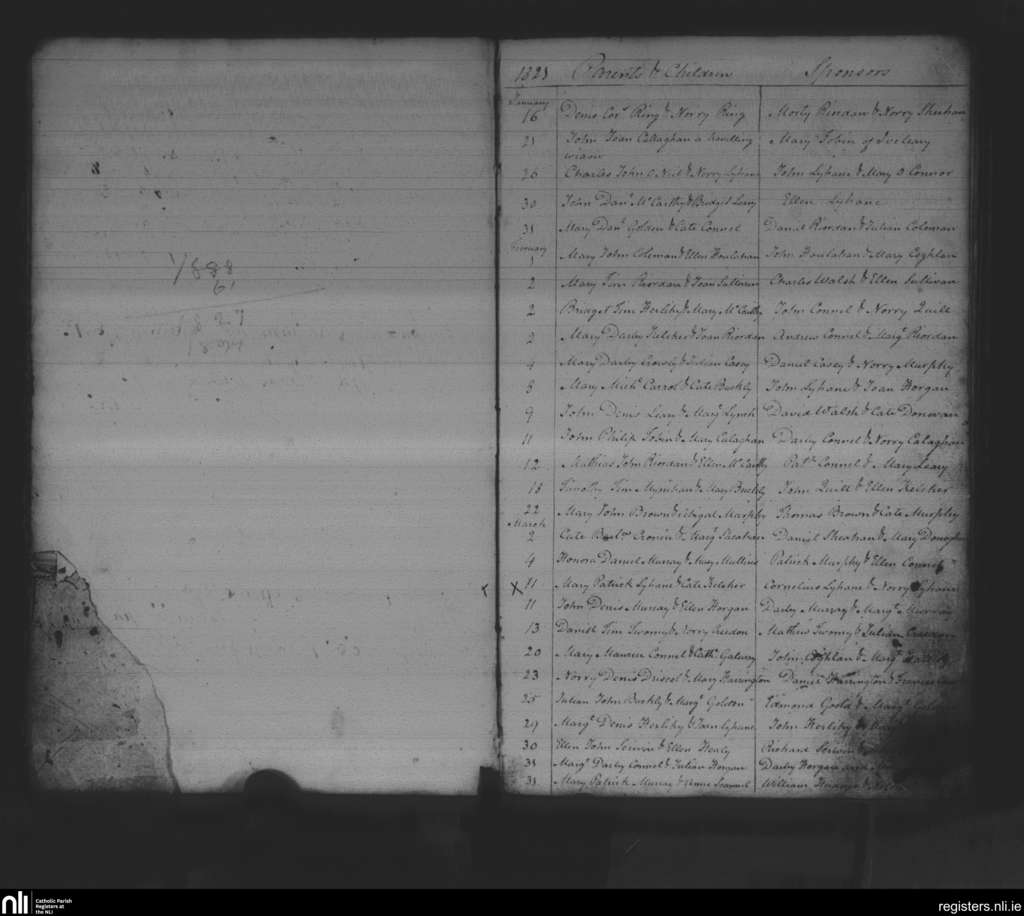 1821 Parents & Children Sponsors
January
16 Denis Cor.s Ring & Norry Ring Morty Riordan & Norry Sheehan
21 John Joan Callaghan a travelling Mary Tobin of Iveleary
widow
26 Charles John O Neil & Norry Lyhane John Lyhane & Mary O Connor
30 John Dan.l McCarthy & Bridget Leary Ellen Lyhane
31 Mary Dan.l Golden & Cate Connel Daniel Riordan & Julian Coleman
February
1 Mary John Coleman & Ellen Houlahan John Houlahan & Mary Coghlan
2 Mary Tim Riordan & Joan Sullivan Charles Walsh & Ellen Sullivan
2 Bridget Tim Herlihy & Mary McCarthy John Connel & Norry Quill
2 Mary Darby Kelcher & Joan Riordan Andrew Connel & Marg.t Riordan
4 Mary Darby Crowly & Julian Casey Daniel Casey & Norry Murphy
8 Mary Mich.l Carrol & Cate Buckly John Lyhane & Joan Horgan
9 John Denis Leary & Mary Lynch David Walsh & Cate Donovan
11 John Philip Tobin & Mary Calaghan Darby Connel & Norry Calaghan
12 Mathias John Riordan & Ellen McCarthy Pat.k Connel & Mary Leary
18 Timothy Tim Mynihan & Mary Buckly John Quill & Ellen Kelcher
22 Mary John Brown & Abigal Murphy Thomas Brown & Cate Murphy
March
2 Cate Cronin & Marg.t Sheahan Daniel Sheahan & Mary Donoghue
4 Honora Daniel Murray & Mary Mullins Patrick Murphy & Ellen Connel
X 11 Mary Patrick Lyhane & Cate Kelcher Cornelius Lyhane & Norry Lyhane
11 John Denis Murray & Ellen Horgan Darby Murray & Marg.t
13 Daniel Tim Twomy & Norry Creedon Mathew Twomy & Julian
20 Mary Maurice Connel & Cath. Galwey John Coghlan & Marg.t
23 Norry Denis Driscol & Mary Harrington Daniel Harrington & Frances
25 Julian John Buckly & Marg.t Golden Edmond Goold & Marg.t
29 Marg.t Denis Herlihy & Joan Lyhane John Herlihy &
30 Ellen John & Ellen Healy Richard
31 Marg.t Darby Connel & Julian Horgan Darby Horgan and
31 Mary Patrick & William
nli
Catholic Parish
Registers at
the NLI
registers.nli.ie